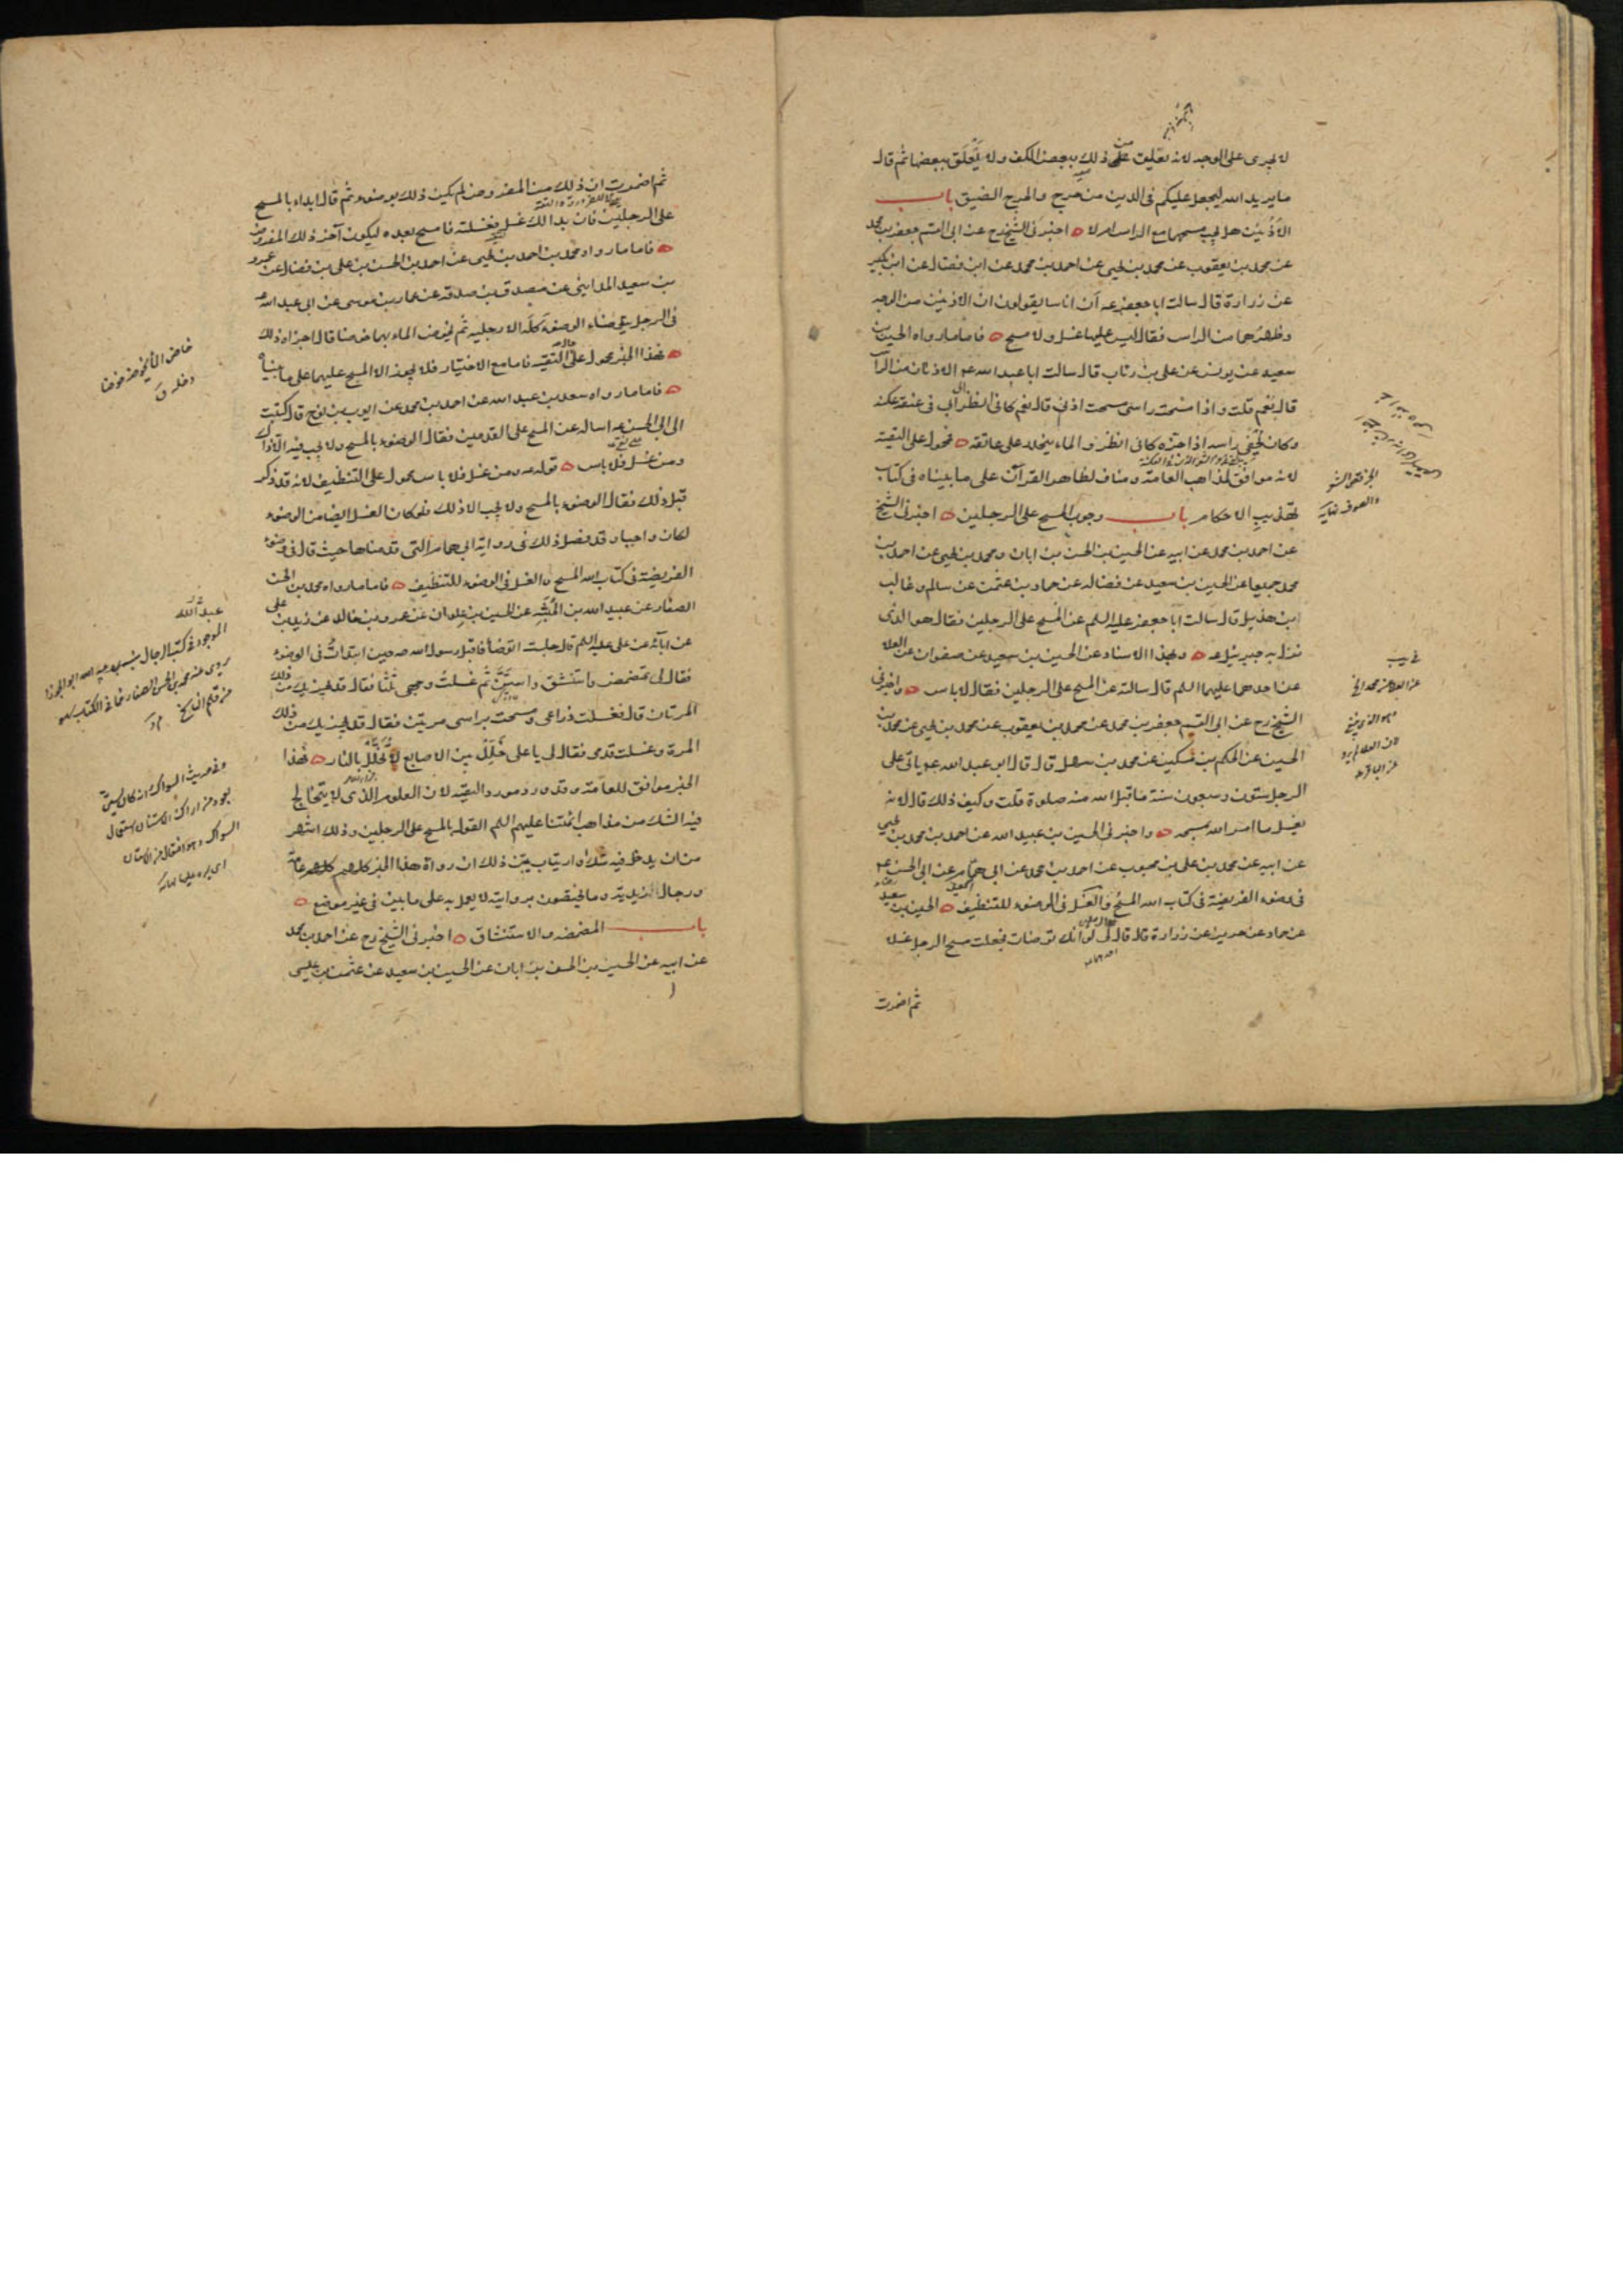 لا يجرى على الوجه لانه تعليق على ذلك ببعض الكف ولا يعلق ببعضها ثم قال
ما يريد الله ليجعل عليكم في الدين من حرج والحرج الضيق باب
الاذنين هل يجب مسحهما مع الراس ام لا اخبرني الشيخ رح عن ابى القسم جعفر بن محمد
عن محمد بن يعقوب عن محمد بن يحيى عن احمد بن محمد عن ابن فضال عن ابن بكير
عن زرارة قال سالت ابا جعفر عه ان اناسا يقولون ان الاذنين من الوجه
وظهرهما من الراس فقال ليس عليهما غسل ولا مسح فاما ما رواه الحسين بن
سعيد عن يونس عن على بن رئاب قال سالت ابا عبد الله عه الاذنان من الراس
قال نعم قلت واذا مسحت راسى مسحت اذنى قال نعم كانى انظر الى ابى في عنقه عكنه
وكان يحفى راسه اذا جزه كانى انظر والماء ينحدر على عاتقه فمحمول على التقية
لانه موافق لمذاهب العامة ومناف لظاهر القرآن على ما بيناه في كتاب
تهذيب الاحكام باب وجوب المسح على الرجلين اخبرني الشيخ
عن احمد بن محمد عن ابيه عن الحسين بن الحسن بن ابان ومحمد بن يحيى عن احمد بن
محمد جميعا عن الحسين بن سعيد عن فضاله عن حماد بن عثمن عن سالم وغالب
ابن هذيل قال سالت ابا جعفر عليه السلم عن المسح على الرجلين فقال هو الذى
نزل به جبرئيل عه وبهذا الاسناد عن الحسين بن سعيد عن صفوان عن العلا
عن احدهما عليهما السلم قال سالته عن المسح على الرجلين فقال لا باس واخبرني
الشيخ رح عن ابى القسم جعفر بن محمد عن محمد بن يعقوب عن محمد بن يحيى عن محمد بن
الحسين عن الحكم بن مسكين عن محمد بن سهل قال قال ابو عبد الله عه ياتى على
الرجل ستون وسبعون سنة ما قبل الله منه صلوة قلت وكيف ذلك قال لانه
يغسل ما امر الله بمسحه واخبرني الحسين بن عبيد الله عن احمد بن محمد بن يحيى
عن ابيه عن محمد بن على بن محبوب عن احمد بن محمد عن ابى همام عن ابى الحسن عه
في وضوء الفريضة في كتاب الله المسح والغسل في الوضوء للتنظيف الحسين بن سعيد
عن حماد عن حريز عن زرارة قال قال لى لو انك توضات فجعلت مسح الرجل غسلا
ثم اضمرت
ثم اضمرت ان ذلك من المفروض لم يكن ذلك بوضوء ثم قال ابداء بالمسح
على الرجلين فان بدا لك غسل فغسلته فامسح بعده ليكون آخر ذلك المفروض
فاما ما رواه محمد بن احمد بن يحيى عن احمد بن الحسن بن على بن فضال عن عمرو
بن سعيد المدايني عن مصدق بن صدقه عن عمار بن موسى عن ابى عبد الله عه
في الرجل يتوضاء الوضوء كله الا رجليه ثم يخوض الماء بهما خوضا قال اجزاه ذلك
فهذا الخبر محمول على حال التقيه فاما مع الاختيار فلا يجوز الا المسح عليهما على ما بيناه
فاما ما رواه سعد بن عبد الله عن احمد بن محمد عن ايوب بن نوح قال كتبت
الى ابى الحسن عه اساله عن المسح على القدمين فقال الوضوء بالمسح ولا يجب فيه الا ذاك
ومن غسل فلا باس قوله عه ومن غسل فلا باس محمول على التنظيف لانه قد ذكر
قبل ذلك فقال الوضوء بالمسح ولا يجب الا ذلك فلو كان الغسل ايضا من الوضوء
لكان واجبا وقد فصل ذلك في رواية ابى همام التى قدمناها حيث قال في وضوء
الفريضة في كتاب الله المسح والغسل في الوضوء للتنظيف فاما ما رواه محمد بن الحسن
الصفار عن عبيد الله بن المنبه عن الحسين بن علوان عن عمرو بن خالد عن زيد بن على
عن آبائه عن على عليه السلم قال جلست اتوضأ فاقبل رسول الله ص حين ابتدات في الوضوء
فقال لى تمضمض واستنشق واستن ثم غسلت وجهى ثلثا فقال قد يجزيك من ذلك
المرتان قال فغسلت ذراعى ومسحت براسى مرتين فقال قد يجزيك من ذلك
المرة وغسلت قدمى فقال لى يا على خلل بين الاصابع لا تخلل بالنار فهذا
الخبر موافق للعامة وقد ورد مورد التقيه لان المعلوم الذى لا يتخالج
فيه الشك من مذاهب ائمتنا عليهم السلم القول بالمسح على الرجلين وذلك اشهر
من ان يدخل فيه شك او ارتياب يبين ذلك ان رواة هذا الخبر كلهم عامة
ورجال الزيدية وما يختصون بروايته لا يعمل به على ما بين في غير موضع
باب المضمضه والاستنشاق اخبرني الشيخ رح عن احمد بن محمد
عن ابيه عن الحسين بن الحسن بن ابان عن الحسين بن سعيد عن عثمن بن عيسى